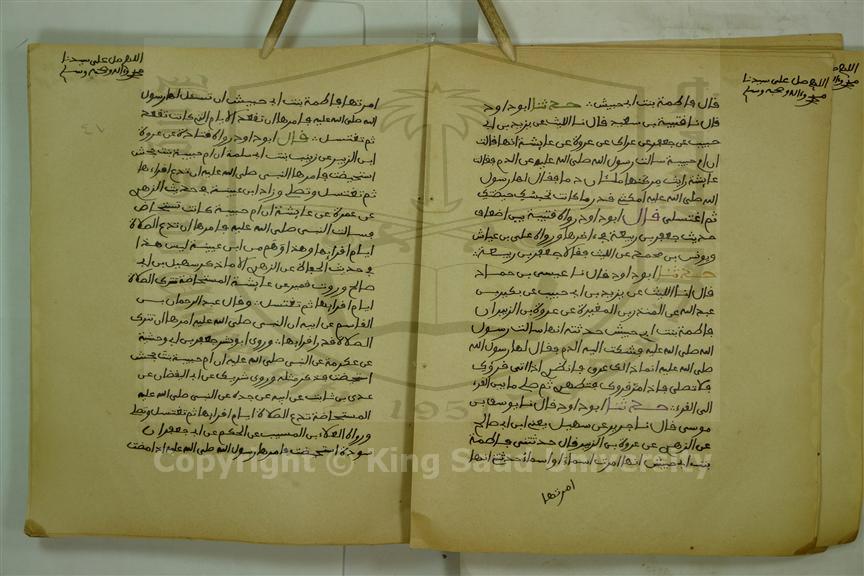 اللهم صل على سيدنا
محمد واله وصحبه وسلم
قال فاطمة بنت ابي حبيش حدثنا ابو داود
قال نا قتيبة بن سعيد قال نا الليث عن يزيد بن ابي
حبيب عن جعفر عن عراك عن عروة عن عايشة انها قالت
ان ام حبيبة سالت رسول الله صلى الله عليه عن الدم فقالت
عايشة رايت مركنها ملئان دما فقال لها رسول
الله صلى الله عليه امكثي قدر ما كانت تحبسك حيضتك
ثم اغتسلي قال ابو داود رواه قتيبة بين اضعاف
حديث جعفر بن ربيعة في اخرها ورواه علي بن عياش
ويونس بن محمد عن الليث فقالا جعفر بن ربيعة
حدثنا ابو داود قال نا عيسى بن حماد
قال انا الليث عن يزيد بن ابي حبيب عن بكير بن
عبد الله عن المنذر بن المغيرة عن عروة بن الزبير ان
فاطمة بنت ابي حبيش حدثته انها سالت رسول
الله صلى الله عليه فشكت اليه الدم فقال لها رسول الله
صلى الله عليه انما ذلك عرق فانظري اذا اتى قروك
فلا تصلي فاذا مر قروك فتطهري ثم صلي ما بين القرء
الى القرء حدثنا ابو داود قال نا يوسف بن
موسى قال نا جرير عن سهيل يعني ابن ابي صالح
عن الزهري عن عروة بن الزبير قال حدثتني فاطمة
بنت ابي حبيش انها امرت اسماء او اسماء حدثتني انها
امرتها
اللهم صل على سيدنا
محمد واله وصحبه وسلم
امرتها فاطمة بنت ابي حبيش ان تسئل لها رسول
الله صلى الله عليه فامرها ان تقعد الايام التي كانت تقعد
ثم تغتسل قال ابو داود رواه قتادة عن عروة
ابن الزبير عن زينب بنت ابي سلمة ان ام حبيبة بنت جحش
استحيضت فامرها النبي صلى الله عليه ان تدع الصلاة ايام اقراءها
ثم تغتسل وتصلي وزاد ابن عيينة في حديث الزهري
عن عمرة عن عايشة ان ام حبيبة كانت تستحاض
فسالت النبي صلى الله عليه فامرها ان تدع الصلاة
ايام اقرايها وهذا وهم من ابن عيينة ليس هذا
في حديث الحفاظ عن الزهري الا ما ذكر سهيل بن ابي
صالح وروت قمير عن عايشة المستحاضة تترك الصلاة
ايام اقرايها ثم تغتسل وقال عبد الرحمان بن
القاسم عن ابيه ان النبي صلى الله عليه امرها ان تترك
الصلاة قدر اقرايها وروى ابو بشر جعفر بن ابي وحشية
عن عكرمة عن النبي صلى الله عليه ان ام حبيبة بنت جحش
استحيضت فذكر مثله وروى شريك عن ابي اليقظان عن
عدي بن ثابت عن ابيه عن جده عن النبي صلى الله عليه
المستحاضة تدع الصلاة ايام اقرايها ثم تغتسل وتصلي
ورواه العلاء بن المسيب عن الحكم عن ابي جعفر ان
سودة استحيضت فامرها رسول الله صلى الله عليه اذا مضت
اللهم صل على سيدنا
Copyright © King Saud University
1957